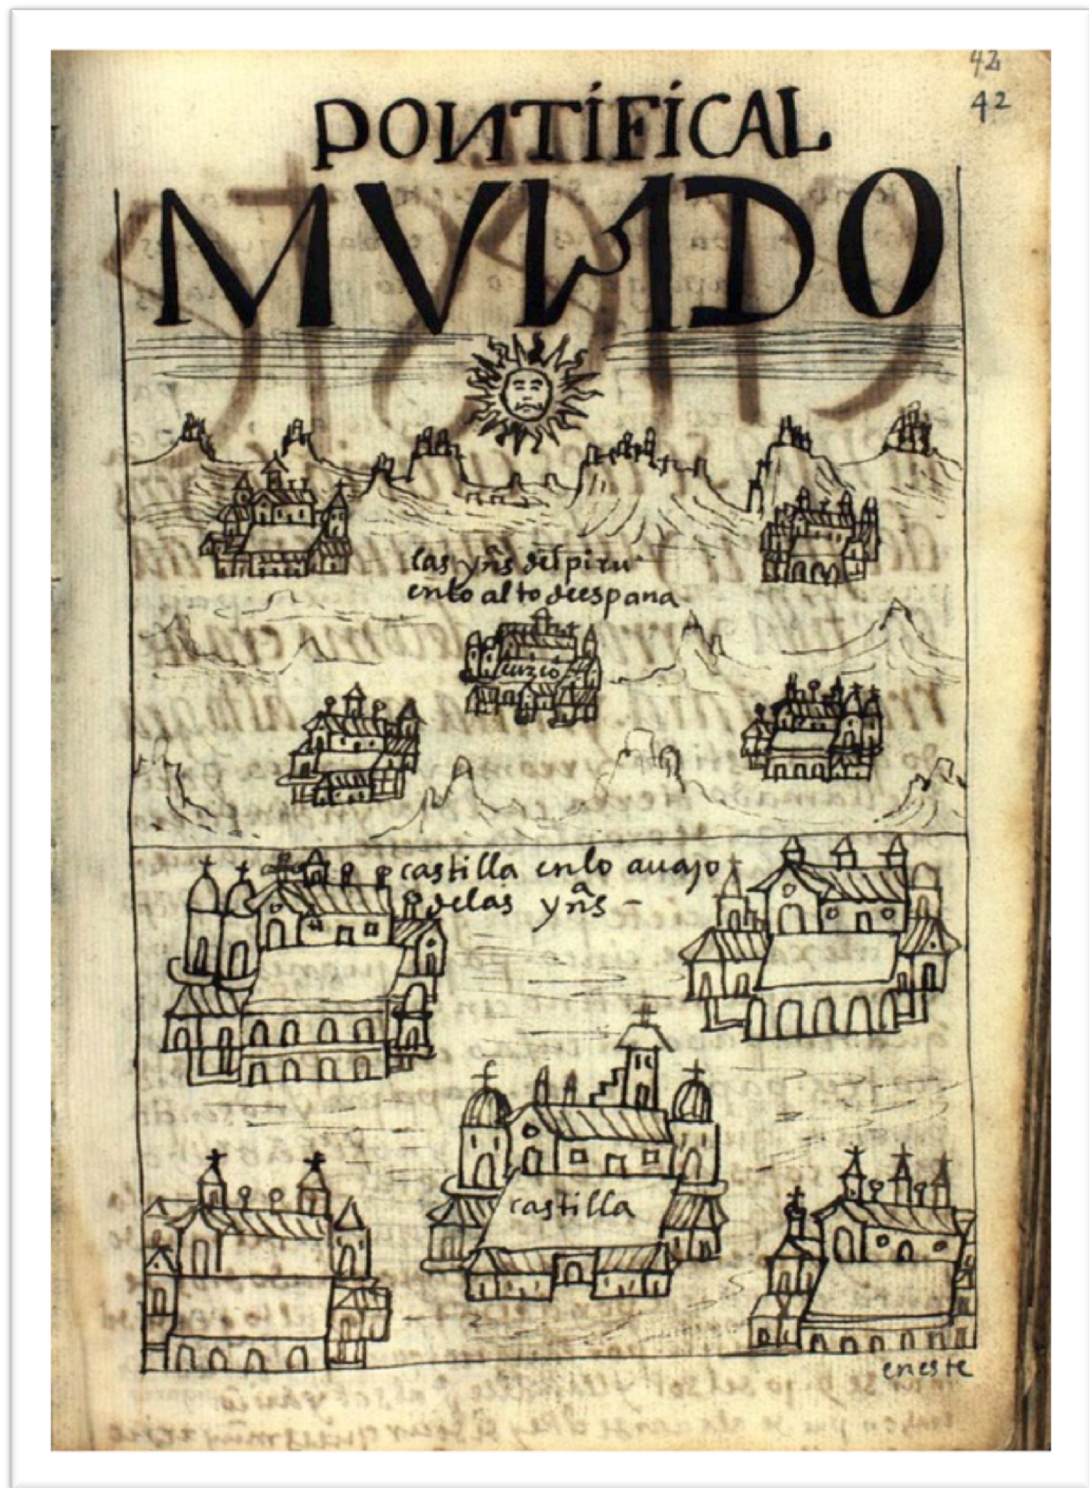 42
42
PONTIFICAL
MVNDO
las yñs del piru
en lo alto deespana
cuzco
castilla en lo auajo
delas yñas –
castilla
en este